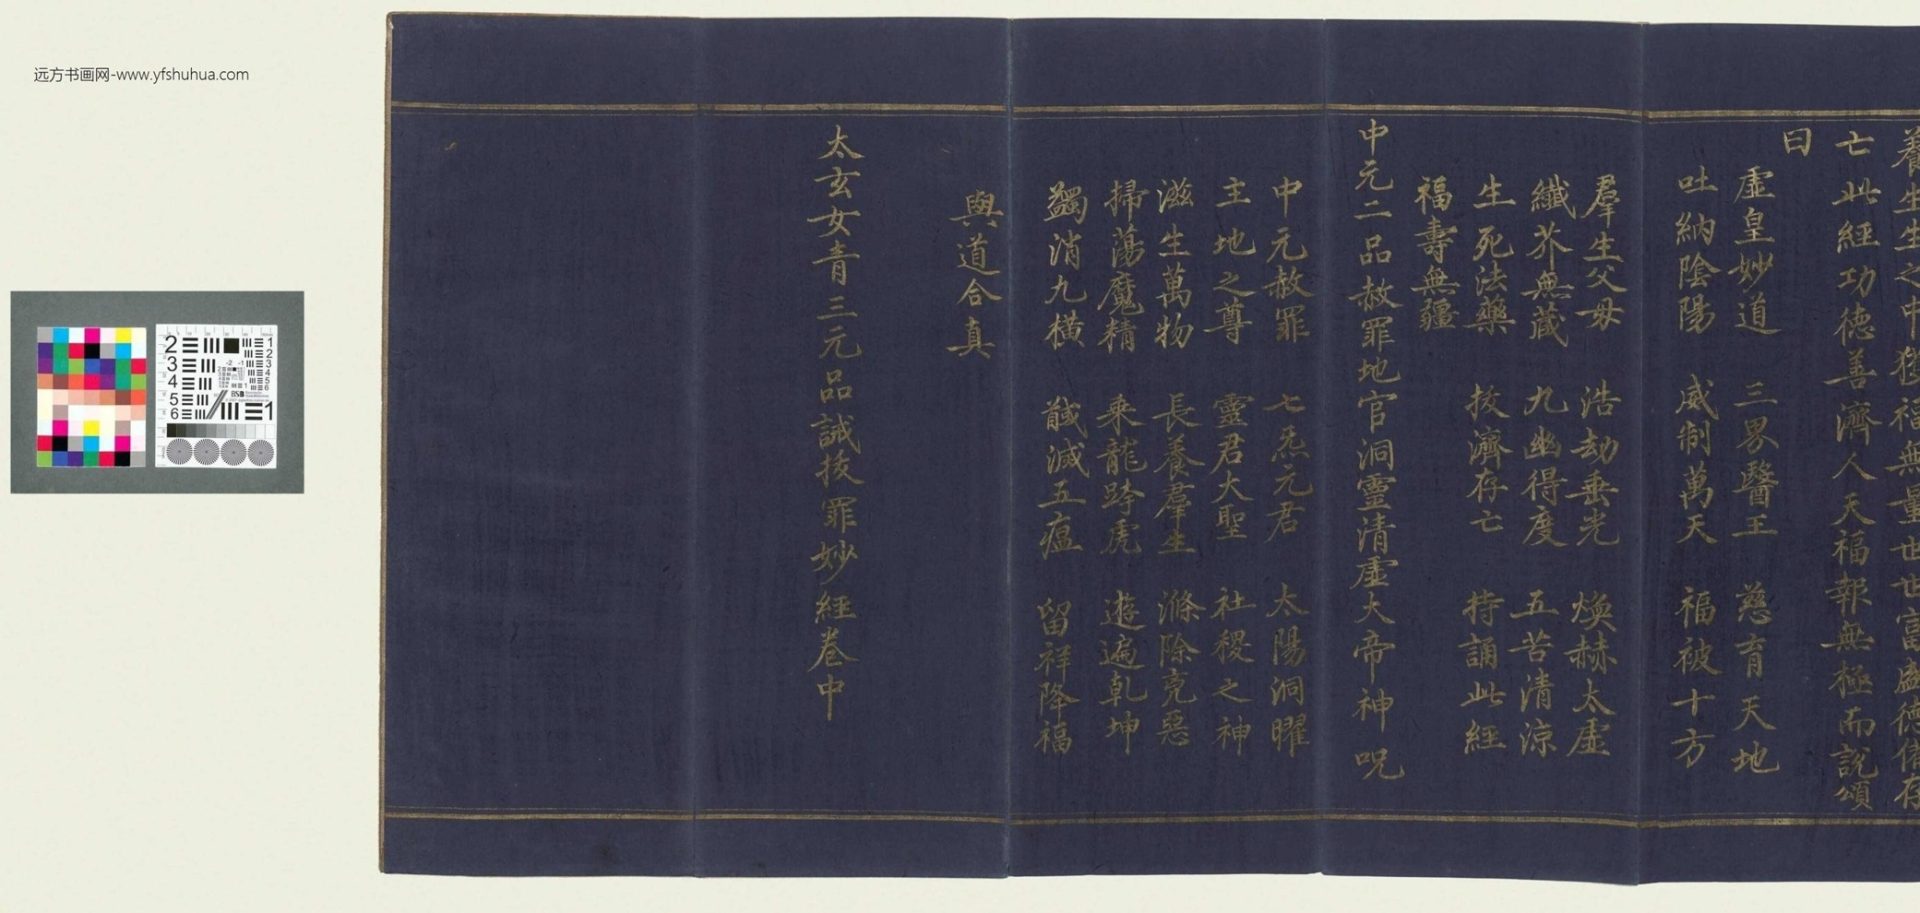 远方书画网-www.yfshuhua.com
養生生之中獲福無量世世富盛德備存
亡此經功德善濟人天福報無極而說頌
曰
虛皇妙道 三界醫王 慈育天地
吐納陰陽 威制萬天 福被十方
羣生父母 浩劫垂光 煥赫太虛
纖芥無蔵 九幽得度 五苦清涼
生死法藥 拔濟存亡 持誦此經
福壽無疆
中元二品赦罪地官洞靈清虛大帝神呪
中元赦罪 七炁元君 太陽洞曜
主地之尊 靈君大聖 社稷之神
滋生萬物 長養羣生 滌除兇惡
掃蕩魔精 乘龍跨虎 遊遍乹坤
蠲消九横 馘滅五瘟 留祥降福
與道合真
太玄女青三元品誡拔罪妙經卷中